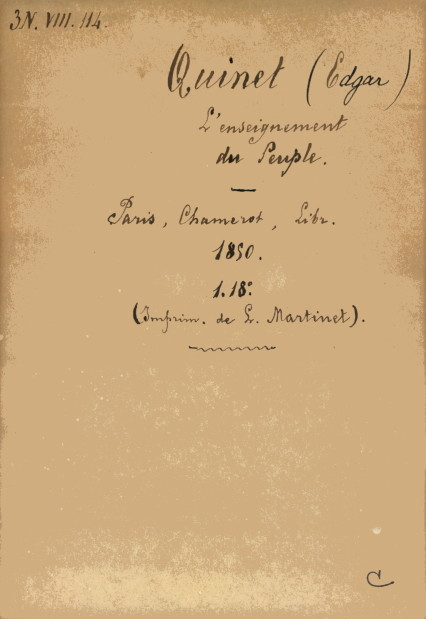 3N. VIII. 114.
Quinet (Edgar)
L'enseignement
du Peuple.
Paris, Chamerot, Libr.
1850.
1.18º
(Imprim. de L. Martinet).
C